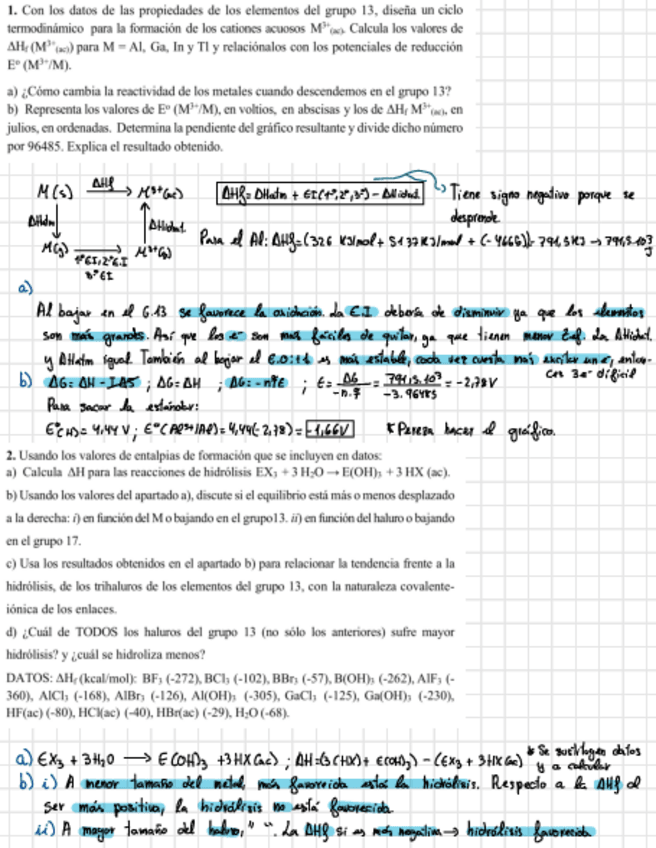 1. Con los datos de las propiedades de los elementos del grupo 13, diseña un ciclo
termodinámico para la formación de los cationes acuosos M³⁺(ac). Calcula los valores de
ΔHf (M³⁺(ac)) para M = Al, Ga, In y Tl y relaciónalos con los potenciales de reducción
Eº (M³⁺/M).
a) ¿Cómo cambia la reactividad de los metales cuando descendemos en el grupo 13?
b) Representa los valores de Eº (M³⁺/M), en voltios, en abscisas y los de ΔHf M³⁺(ac), en
julios, en ordenadas. Determina la pendiente del gráfico resultante y divide dicho número
por 96485. Explica el resultado obtenido.
M(s) ΔHf → M³⁺(ac)
ΔHf = ΔHatm + EI(1ª,2ª,3ª) - ΔHidrat.
Tiene signo negativo porque se
desprende
ΔHatm ΔHidrat.
M(g) → M³⁺(g)
1ªEI, 2ªEI
3ªEI
Para el Al: ΔHf = (326 KJ/mol + 5137 KJ/mol + (-4666)) = 794,5 KJ → 794,5·10³ J
a)
Al bajar en el G.13 se favorece la oxidación. La E.I debería de disminuir ya que los elementos
son más grandes. Así que los e⁻ son más fáciles de quitar, ya que tienen menor Zef. La ΔHidrat.
y ΔHatm igual. También al bajar el E.O: +1 es más estable, cada vez cuesta más excitar un e⁻, enton-
ces 3e⁻ difícil
b) ΔG = ΔH - TΔS ; ΔG = ΔH ; ΔG = -nFE ; E = ΔG/-n.F = 794,5.10³/-3.96485 = -2,78V
Para sacar la estándar:
E°(H) = 4,44 V ; E°(Al³⁺/Al) = 4,44(-2,78) = -1,66V
* Pereza hacer el gráfico.
2. Usando los valores de entalpías de formación que se incluyen en datos:
a) Calcula ΔH para las reacciones de hidrólisis EX₃ + 3 H₂O → E(OH)₃ + 3 HX (ac).
b) Usando los valores del apartado a), discute si el equilibrio está más o menos desplazado
a la derecha: i) en función del M o bajando en el grupo13. ii) en función del haluro o bajando
en el grupo 17.
c) Usa los resultados obtenidos en el apartado b) para relacionar la tendencia frente a la
hidrólisis, de los trihaluros de los elementos del grupo 13, con la naturaleza covalente-
iónica de los enlaces.
d) ¿Cuál de TODOS los haluros del grupo 13 (no sólo los anteriores) sufre mayor
hidrólisis? y ¿cuál se hidroliza menos?
DATOS: ΔHf (kcal/mol): BF₃ (-272), BCl₃ (-102), BBr₃ (-57), B(OH)₃ (-262), AlF₃ (-
360), AlCl₃ (-168), AlBr₃ (-126), Al(OH)₃ (-305), GaCl₃ (-125), Ga(OH)₃ (-230),
HF(ac) (-80), HCl(ac) (-40), HBr(ac) (-29), H₂O (-68).
a) EX₃ + 3H₂O → E(OH)₃ + 3HX(ac) ; ΔH = (3(HX) + E(OH)₃) - (EX₃ + 3HX(ac)) * Se sustituyen datos
y a calcular
b) i) A menor tamaño del metal, más favorecida está la hidrólisis. Respecto a la ΔHf al
ser más positiva, la hidrólisis no está favorecida.
ii) A mayor tamaño del haluro, " ". La ΔHf si es más negativa → hidrólisis favorecida